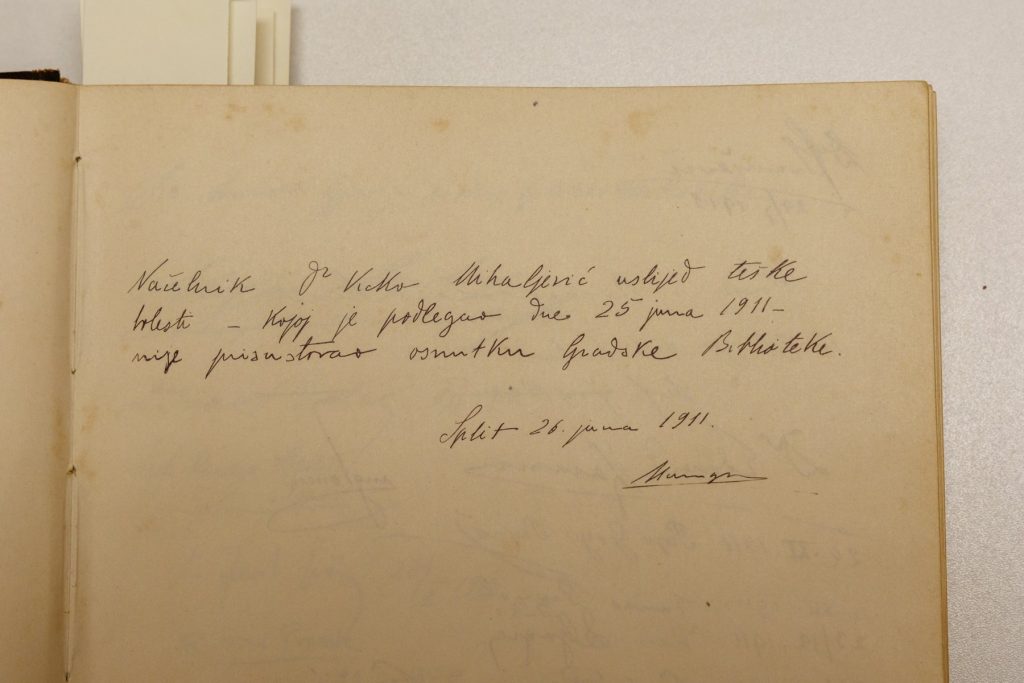 Načelnik Dr Vicko Mihaljević uslijed teške
bolesti – kojoj je podlegao dne 25 juna 1911 –
nije prisustovao osnutku Gradske Biblioteke.
Split 26. juna 1911.